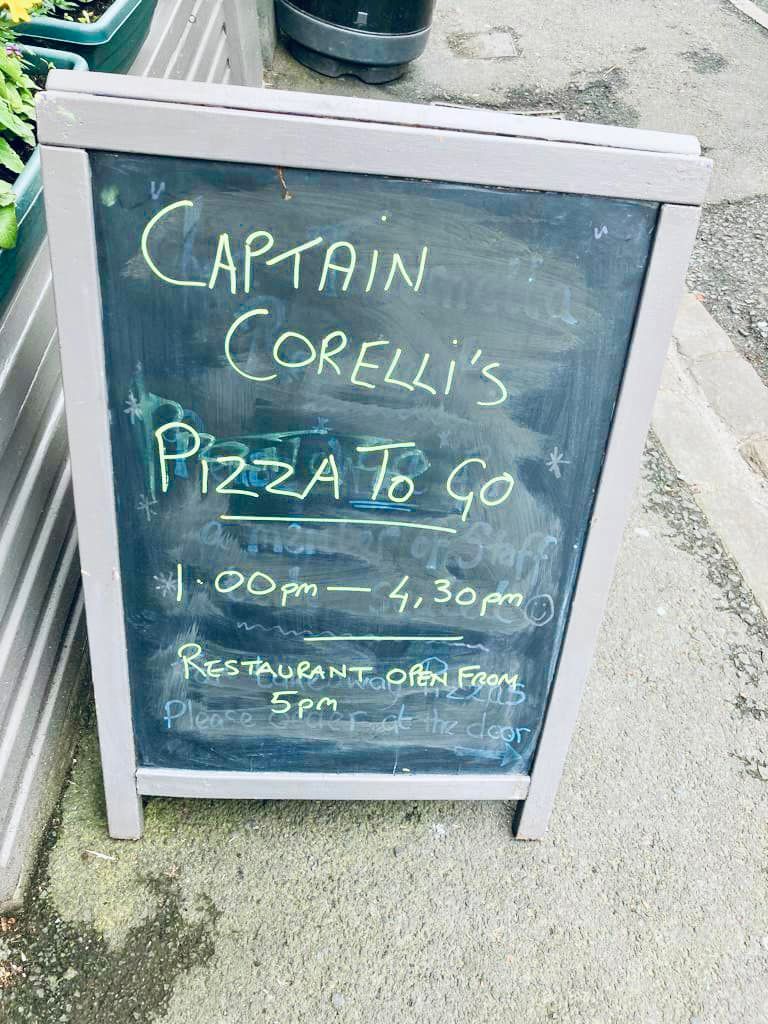 CAPTAIN
CORELLI'S
PIZZA TO GO
1.00pm — 4,30pm
RESTAURANT OPEN FROM
5pm
a member of Staff
Please order at the door